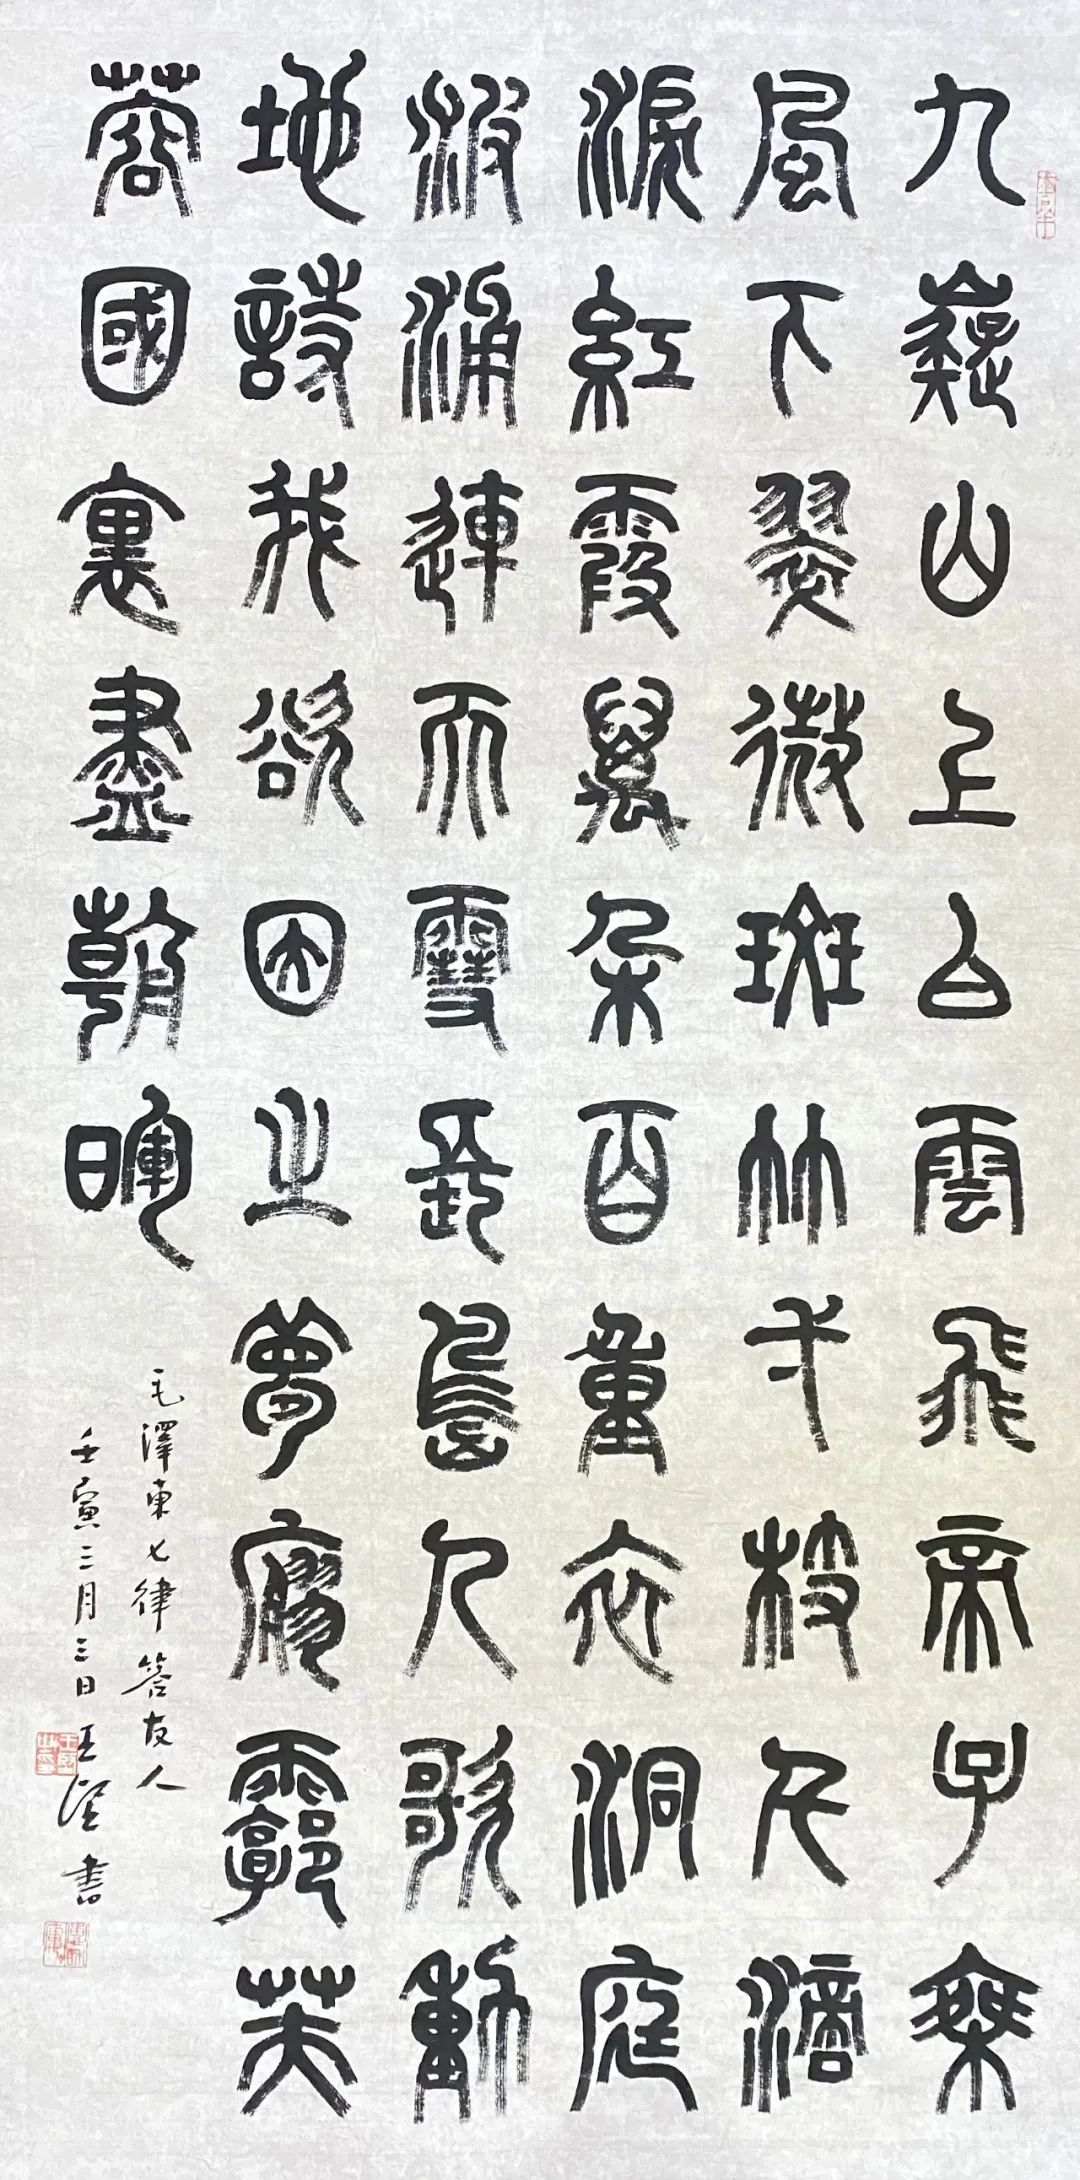 九嶷山上白雲飛帝子乘
風下翠微斑竹弌枝千滴
淚紅霞萬朵百重衣洞庭
波涌連天雪長島人歌動
地詩我欲因之夢廖霩芙
蓉國裏盡朝暉
毛澤東七律答友人
壬寅三月三日王澄書